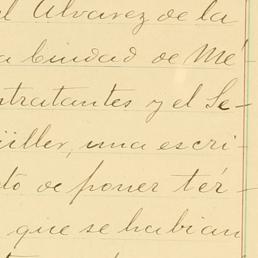 l Alvarez de la
a Ciudad de Mé-
ntratantes y el Se-
üller, una escri-
to de poner tér-
que se habian